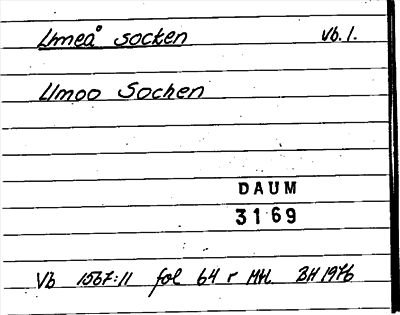 Umeå socken Vb. 1.
Umoo Sochen
DAUM
3169
Vb 1567:11 fol 64 r MtL BH 1976